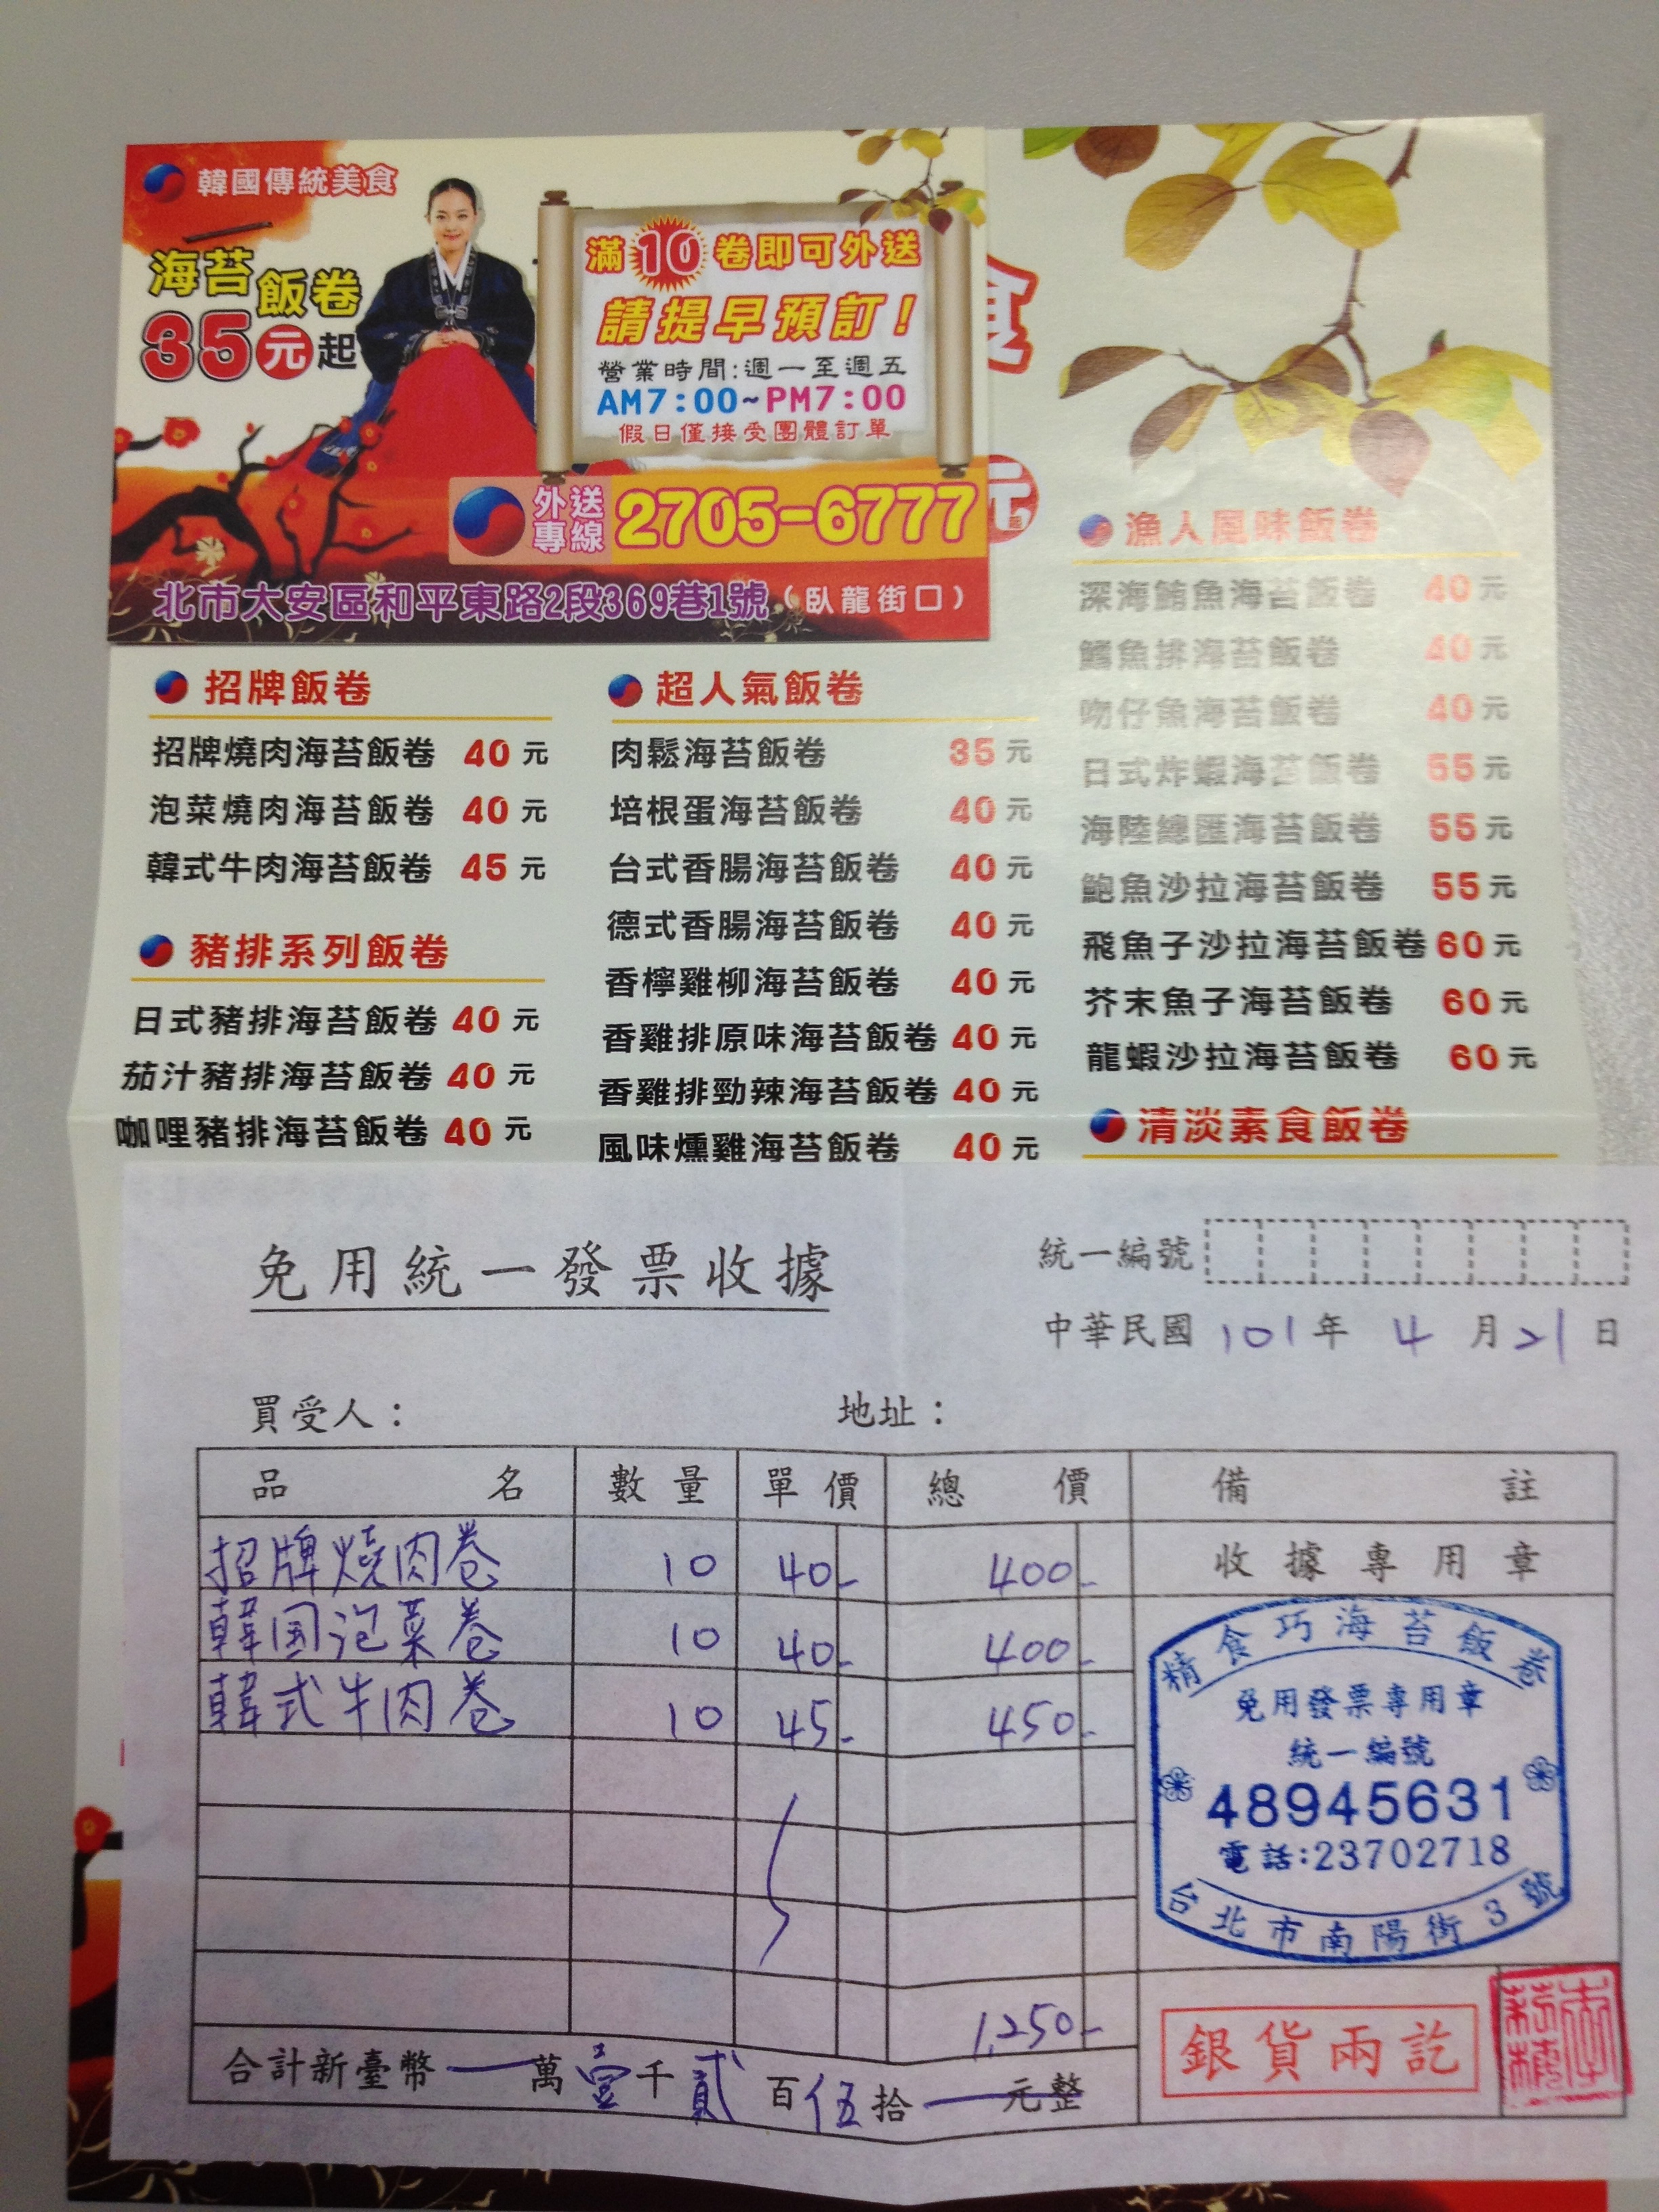 韓國傳統美食
海苔飯卷
35元起
滿10卷即可外送
請提早預訂!
營業時間:週一至週五
AM7:00~PM7:00
假日僅接受團體訂單
外送專線 2705-6777
北市大安區和平東路2段369巷1號(臥龍街口)
食
元起
招牌飯卷
招牌燒肉海苔飯卷 40元
泡菜燒肉海苔飯卷 40元
韓式牛肉海苔飯卷 45元
豬排系列飯卷
日式豬排海苔飯卷 40元
茄汁豬排海苔飯卷 40元
咖哩豬排海苔飯卷 40元
超人氣飯卷
肉鬆海苔飯卷 35元
培根蛋海苔飯卷 40元
台式香腸海苔飯卷 40元
德式香腸海苔飯卷 40元
香檸雞柳海苔飯卷 40元
香雞排原味海苔飯卷 40元
香雞排勁辣海苔飯卷 40元
風味燻雞海苔飯卷 40元
漁人風味飯卷
深海鮪魚海苔飯卷 40元
鱈魚排海苔飯卷 40元
吻仔魚海苔飯卷 40元
日式炸蝦海苔飯卷 55元
海陸總匯海苔飯卷 55元
鮑魚沙拉海苔飯卷 55元
飛魚子沙拉海苔飯卷 60元
芥末魚子海苔飯卷 60元
龍蝦沙拉海苔飯卷 60元
清淡素食飯卷
免用統一發票收據
統一編號
中華民國101年4月21日
買受人: 地址:
品名 數量 單價 總價 備註
招牌燒肉卷 10 40- 400-
韓国泡菜卷 10 40- 400-
韓式牛肉卷 10 45- 450-
1,250-
合計新臺幣一萬壹千貳百伍拾一元整
收據專用章
精食巧海苔飯卷
免用發票專用章
統一編號
48945631
電話:23702718
台北市南陽街3號
銀貨兩訖